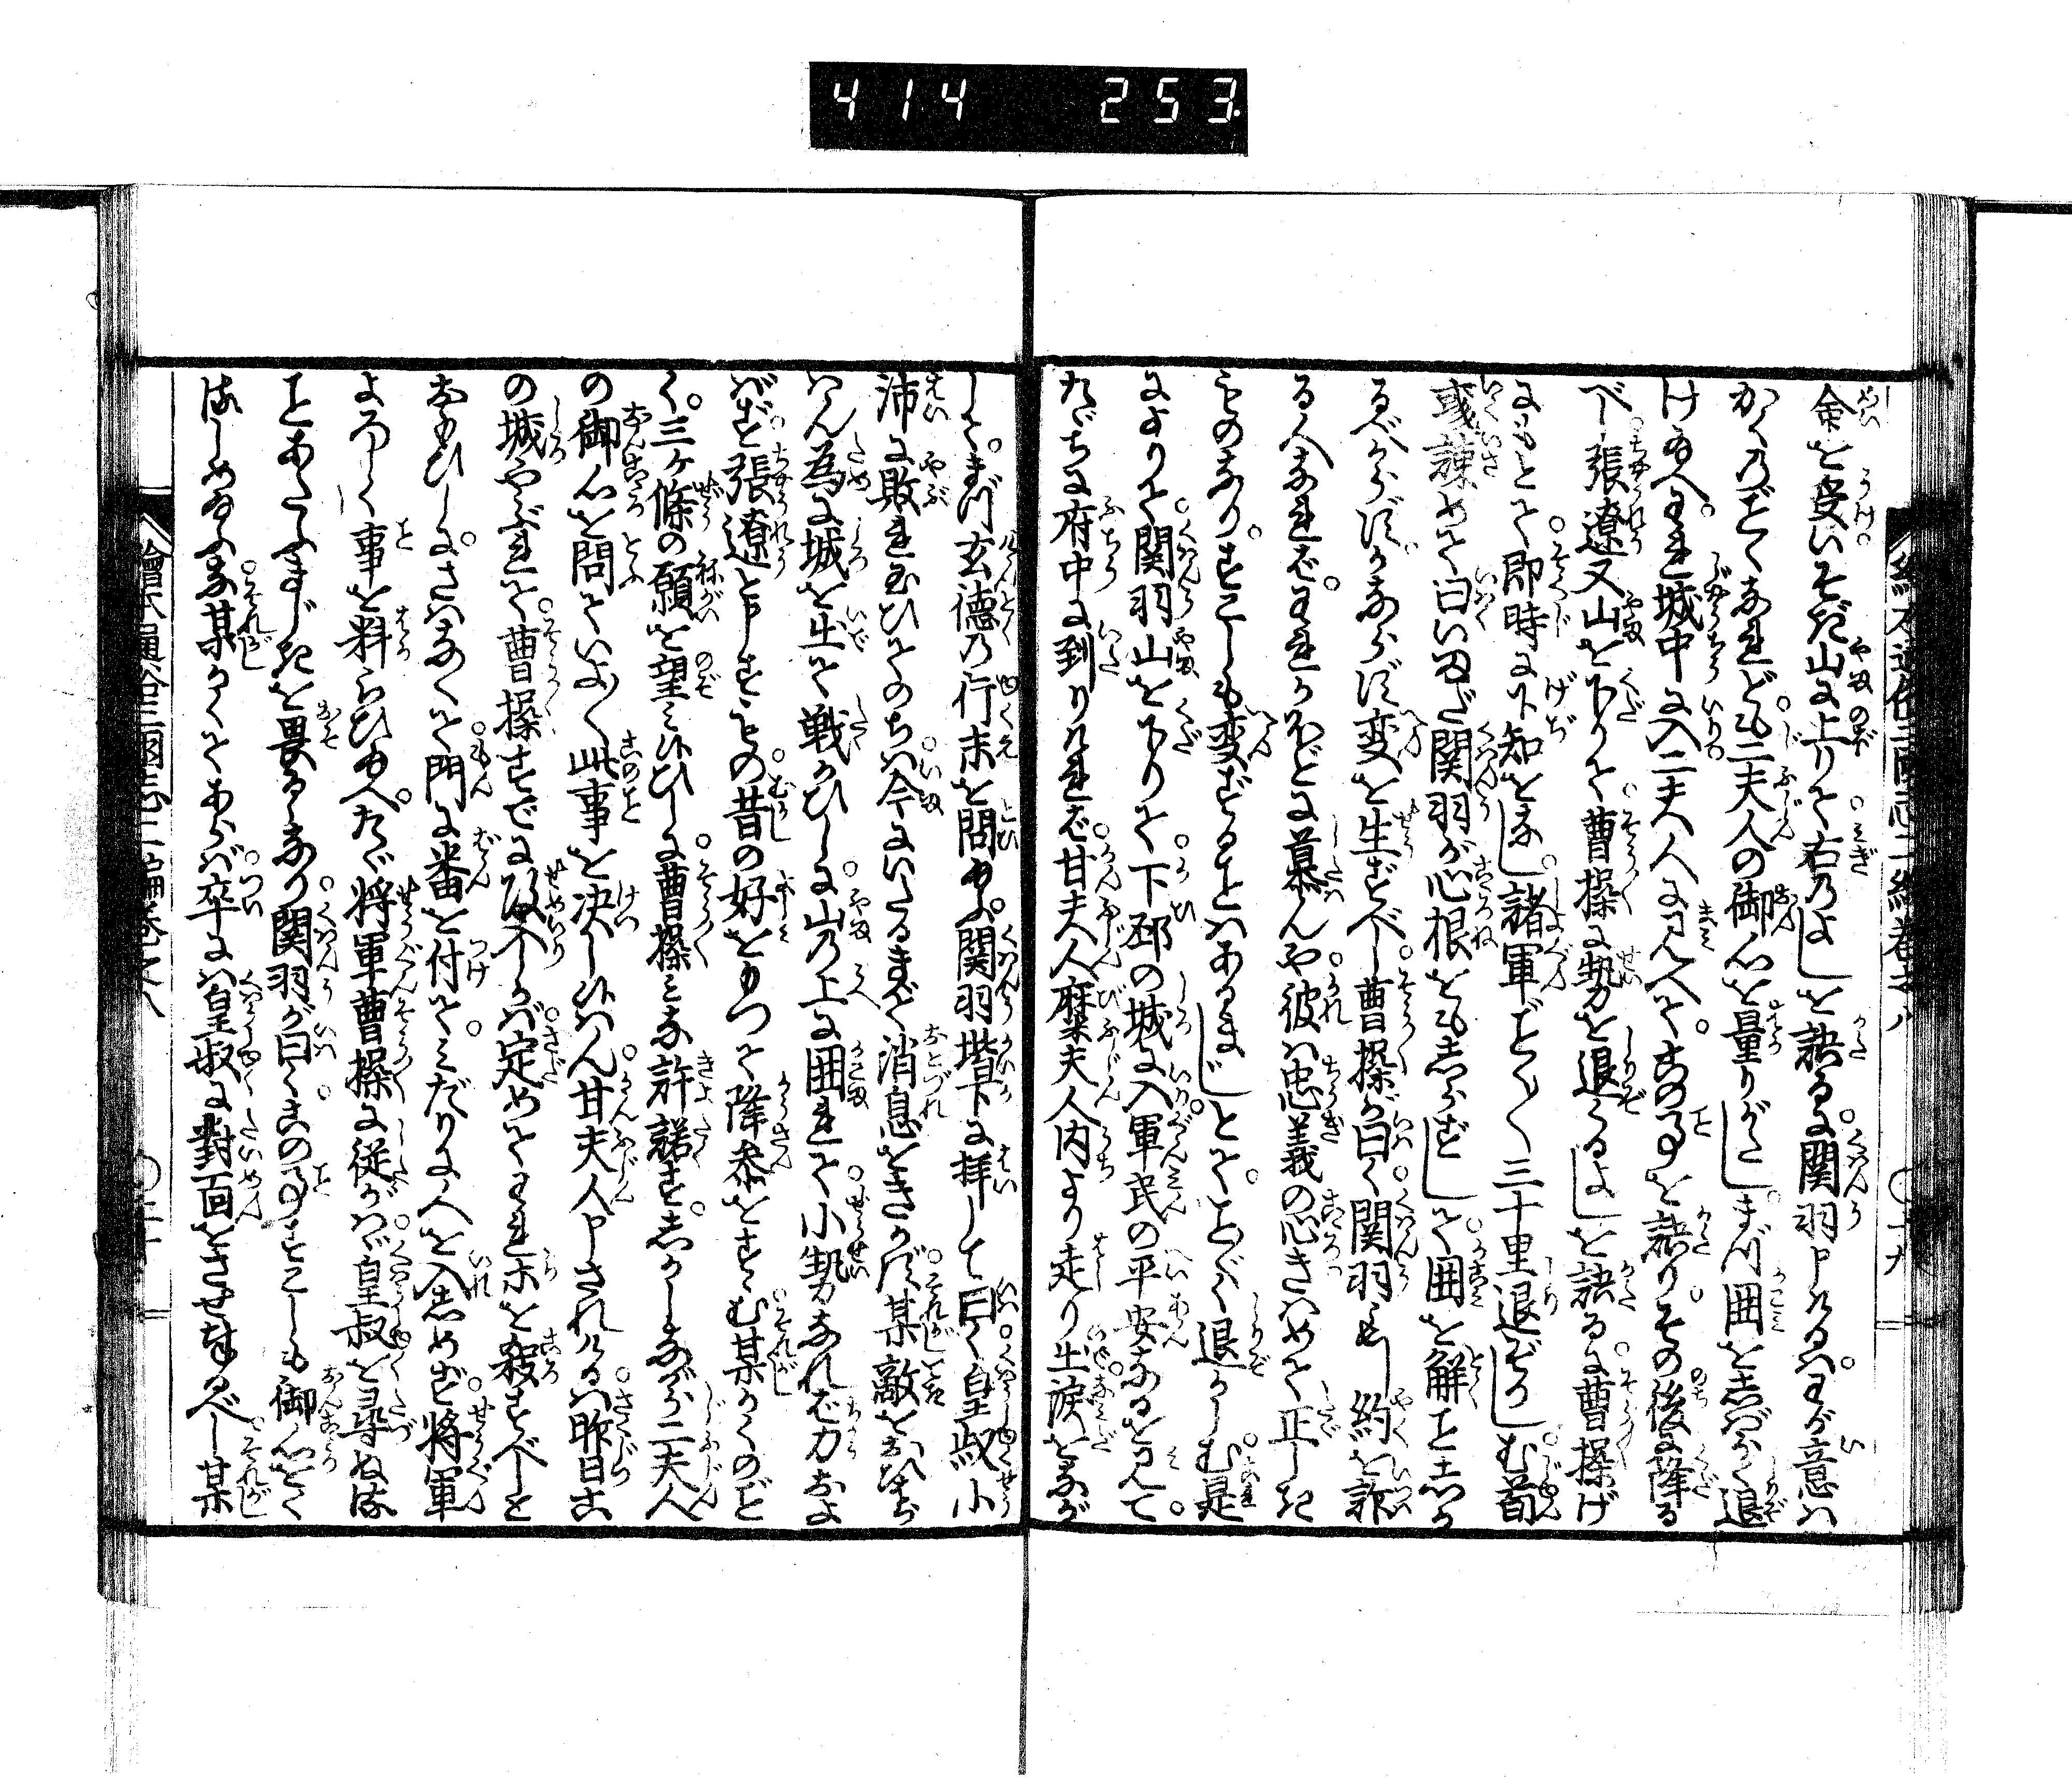 414 253
命を受いそぎ山に上りて右のよしを訣るに関羽申けるはわが意は
かくのごくなれども二夫人の御心を量りがたしまづ囲をしばらく退
け給へわれ城中に入二夫人にまみへてこの事を訣りその後に降る
べし張遼又山を下りて曹操に勢を退くるよしを訣るに曹操げ
にもとて即時に下知をなし諸軍ごとく三十里退ぞかしむ荀
彧諫めて曰いまだ関羽が心根をも志らずして囲を解こと志か
るべからずかならず変を生ずべし曹操が曰く関羽もし約を詐
る人なればわれかほどに慕んや彼は忠義の心きはめて正しき
ものなりすこしも変ずることはあるまじとてことごく退かしむ是
によりて関羽山を下りて下邳の城に入軍民の平安なるを見て
たゞちに府中に到りければ甘夫人糜夫人内より走り出涙をなが
して。まづ玄徳の行末を問給ふ関羽堦下に拝して曰く皇叔小
沛に敗れ玉ひてのちは今にいたるまで消息をきかず某敵をおひちら
はん為に城を出て戦かひしに山の上に囲れて小勢なれば力およ
ばず張遼と申すもの昔の好をもつて降参をすゝむ某かくのごと
く。三ヶ條の願を望み候ひしに曹操みな許諾す志かしながら二夫人
の御心を問ていよ〱此事を决し候はん甘夫人申されけるは昨日こ
の城やぶれて曹操すでに攻入しかば定めてわれ〱を殺すべしと
おもひしにさはなくて門に番を付てみだりに人を入志めず将軍
よろしく事を料らひ給へたゞ将軍曹操に従がはゞ皇叔を尋ねま
ことあたふまじきを畏るゝなり関羽が曰くこの事すこしも御心をく
はしめ給ふな某かくてあらば卒には皇叔に對面をさせ奉るべし某
繪本通俗三國志二編巻之八